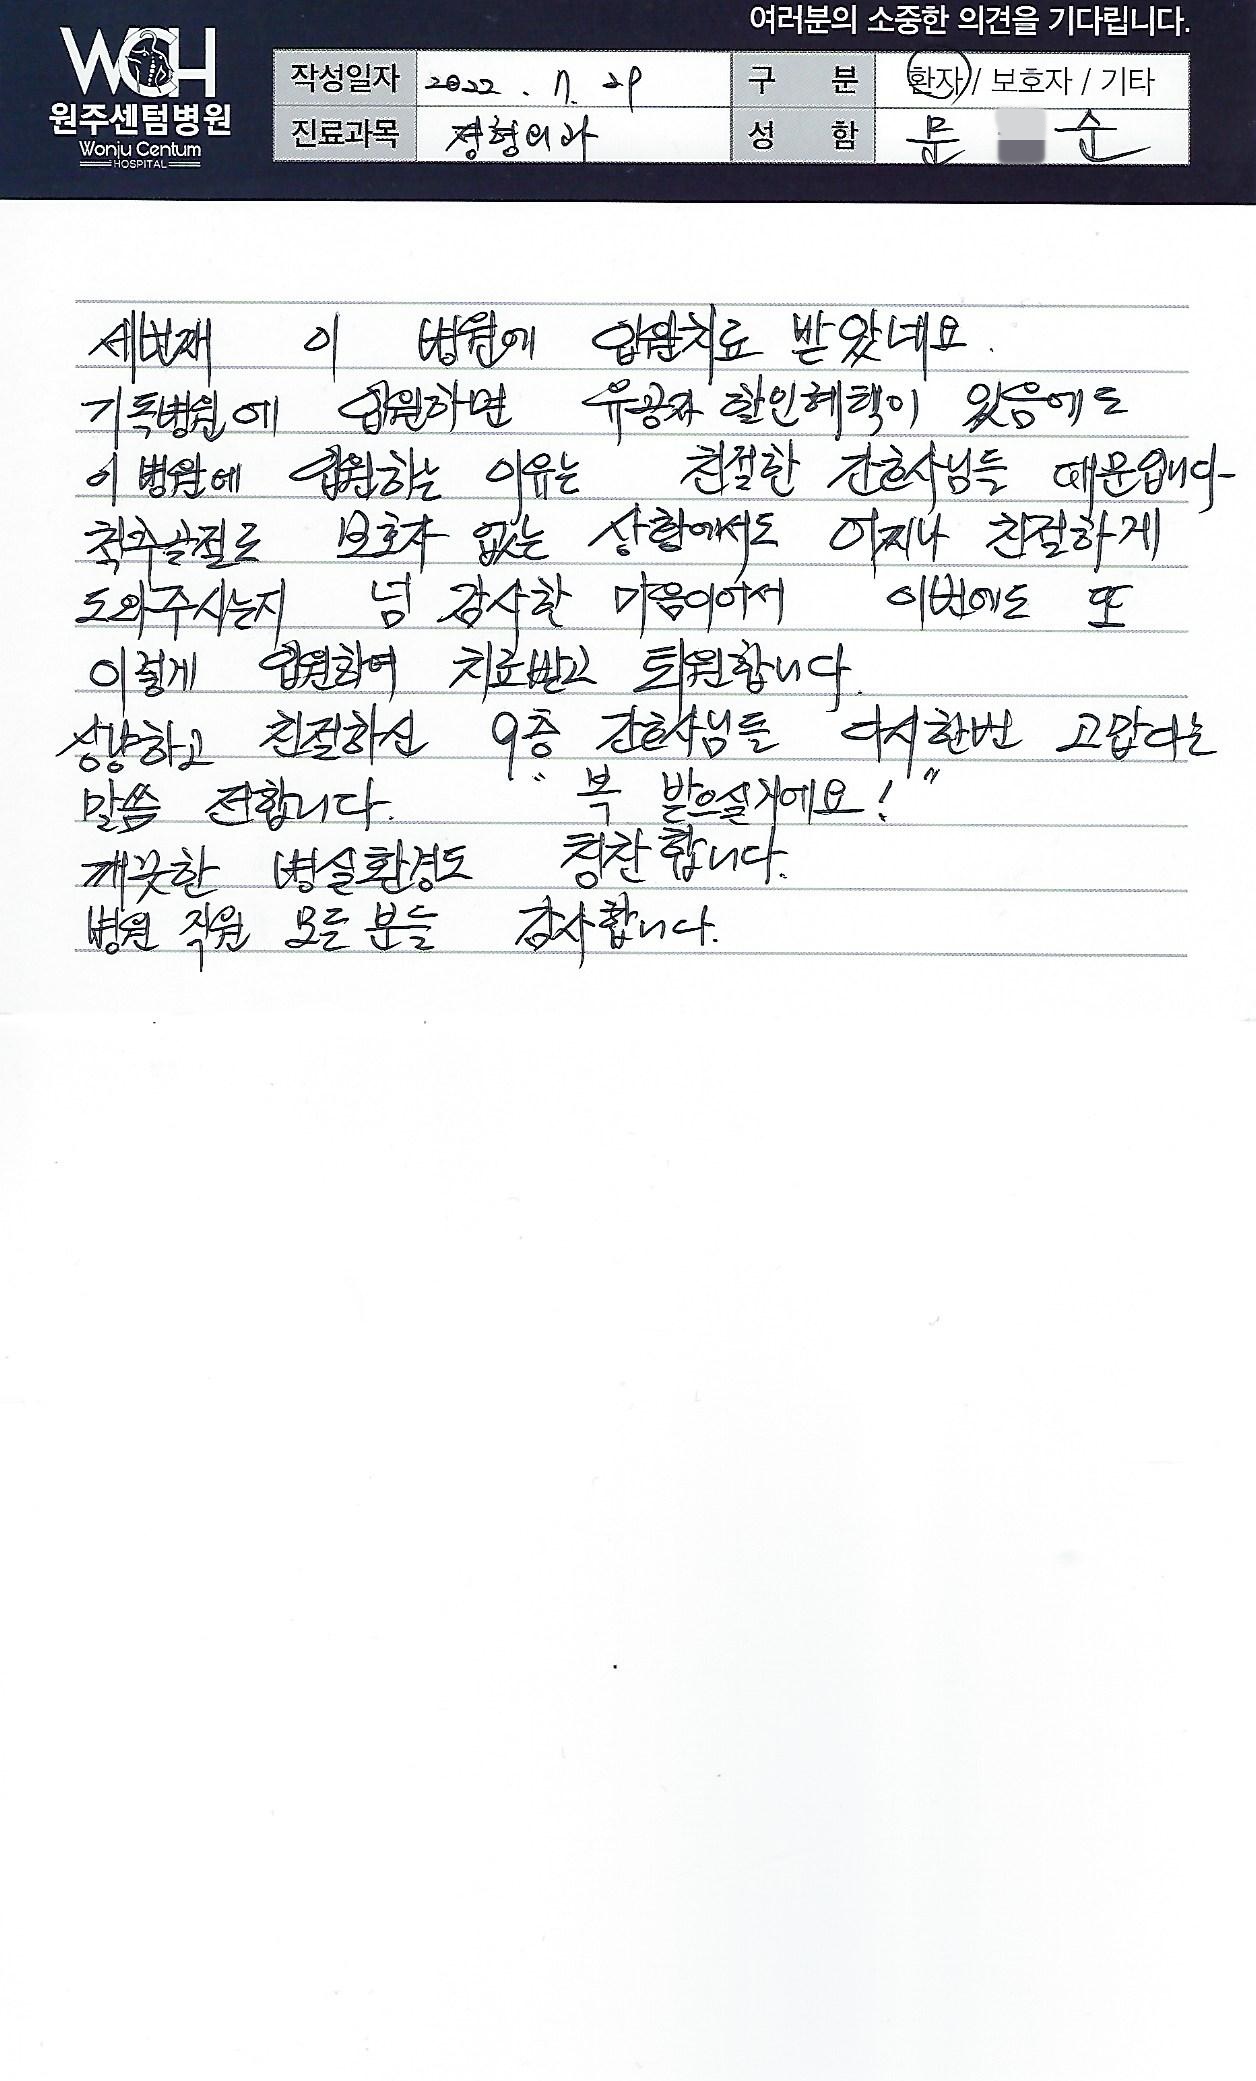 여러분의 소중한 의견을 기다립니다.
WCH
원주센텀병원
Wonju Centum
HOSPITAL
작성일자 2022. 7. 29 구 분 환자 / 보호자 / 기타
진료과목 정형외과 성 함 문 순
세번째 이 병원에 입원치료 받았네요.
기독병원에 입원하면 유공자 할인혜택이 있음에도
이 병원에 입원하는 이유는 친절한 간호사님들 때문입니다
척추골절로 보호자 없는 상황에서도 어찌나 친절하게
도와주시는지 넘 감사한 마음이어서 이번에도 또
이렇게 입원하여 치료받고 퇴원합니다.
상냥하고 친절하신 9층 간호사님들 다시한번 고맙다는
말씀 전합니다. " 복 받으실거에요! "
깨끗한 병실환경도 칭찬합니다.
병원 직원 모든 분들 감사합니다.